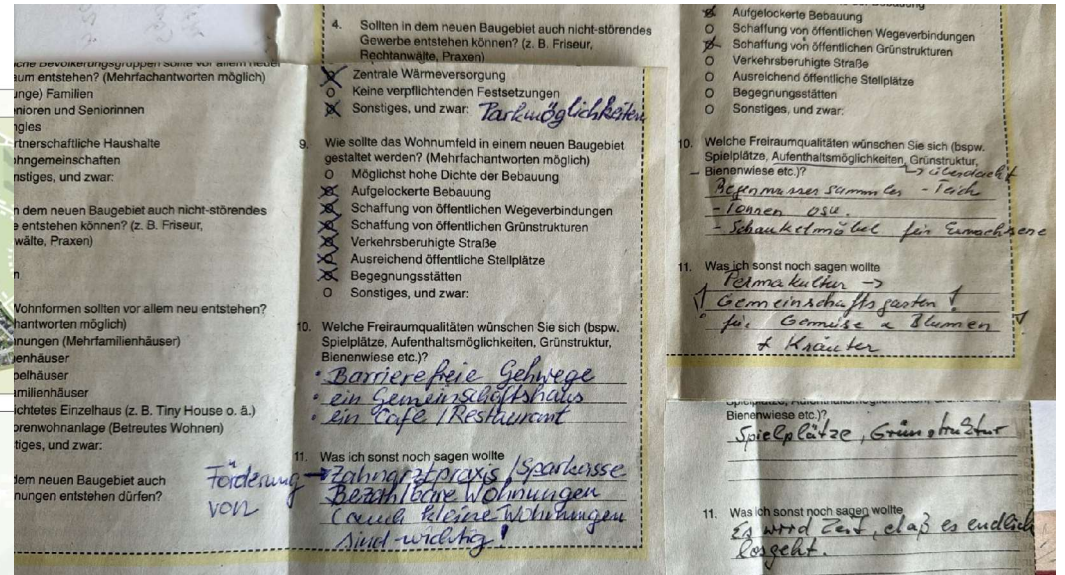 4. Sollten in dem neuen Baugebiet auch nicht-störendes
Gewerbe entstehen können? (z. B. Friseur,
Rechtanwälte, Praxen)
che Bevölkerungsgruppen sollte vor allem neuer
aum entstehen? (Mehrfachantworten möglich)
unge) Familien
enioren und Seniorinnen
ngles
rtnerschaftliche Haushalte
ohngemeinschaften
nstiges, und zwar:
n dem neuen Baugebiet auch nicht-störendes
e entstehen können? (z. B. Friseur,
wälte, Praxen)
n
Wohnformen sollten vor allem neu entstehen?
hantworten möglich)
nungen (Mehrfamilienhäuser)
enhäuser
pelhäuser
amilienhäuser
ichtetes Einzelhaus (z. B. Tiny House o. ä.)
orenwohnanlage (Betreutes Wohnen)
tiges, und zwar:
dem neuen Baugebiet auch
nungen entstehen dürfen?
Zentrale Wärmeversorgung
O Keine verpflichtenden Festsetzungen
Sonstiges, und zwar: Parkmöglichkeiten
9. Wie sollte das Wohnumfeld in einem neuen Baugebiet
gestaltet werden? (Mehrfachantworten möglich)
O Möglichst hohe Dichte der Bebauung
Aufgelockerte Bebauung
Schaffung von öffentlichen Wegeverbindungen
Schaffung von öffentlichen Grünstrukturen
Verkehrsberuhigte Straße
Ausreichend öffentliche Stellplätze
Begegnungsstätten
O Sonstiges, und zwar:
10. Welche Freiraumqualitäten wünschen Sie sich (bspw.
Spielplätze, Aufenthaltsmöglichkeiten, Grünstruktur,
Bienenwiese etc.)?
• Barrierefreie Gehwege
• ein Gemeinschaftshaus
• ein Café / Restaurant
11. Was ich sonst noch sagen wollte
Förderung → Zahnarztpraxis / Sparkasse
von Bezahlbare Wohnungen
(auch kleine Wohnungen
sind wichtig!
Aufgelockerte Bebauung
O Schaffung von öffentlichen Wegeverbindungen
Schaffung von öffentlichen Grünstrukturen
O Verkehrsberuhigte Straße
O Ausreichend öffentliche Stellplätze
O Begegnungsstätten
O Sonstiges, und zwar:
10. Welche Freiraumqualitäten wünschen Sie sich (bspw.
Spielplätze, Aufenthaltsmöglichkeiten, Grünstruktur,
– Bienenwiese etc.)? ↳ überdacht
Regenwasser sammler - Teich
- Tonnen usw.
- Schaukelmöbel für Erwachsene
11. Was ich sonst noch sagen wollte
Permakultur →
! Gemeinschaftsgarten !
für Gemüse & Blumen
+ Kräuter
Spielplätze, Aufenthaltsmöglichkeiten, Grünstruktur,
Bienenwiese etc.)?
Spielplätze, Grünstruktur
11. Was ich sonst noch sagen wollte
Es wird Zeit, daß es endlich
losgeht.